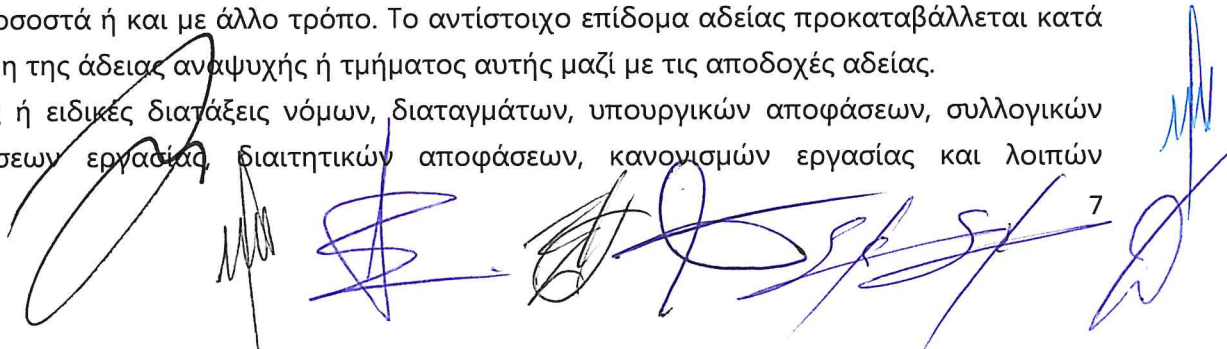 οσοστά ή και με άλλο τρόπο. Το αντίστοιχο επίδομα αδείας προκαταβάλλεται κατά
η της άδειας αναψυχής ή τμήματος αυτής μαζί με τις αποδοχές αδείας.
ή ειδικές διατάξεις νόμων, διαταγμάτων, υπουργικών αποφάσεων, συλλογικών
σεων εργασίας, διαιτητικών αποφάσεων, κανονισμών εργασίας και λοιπών
7